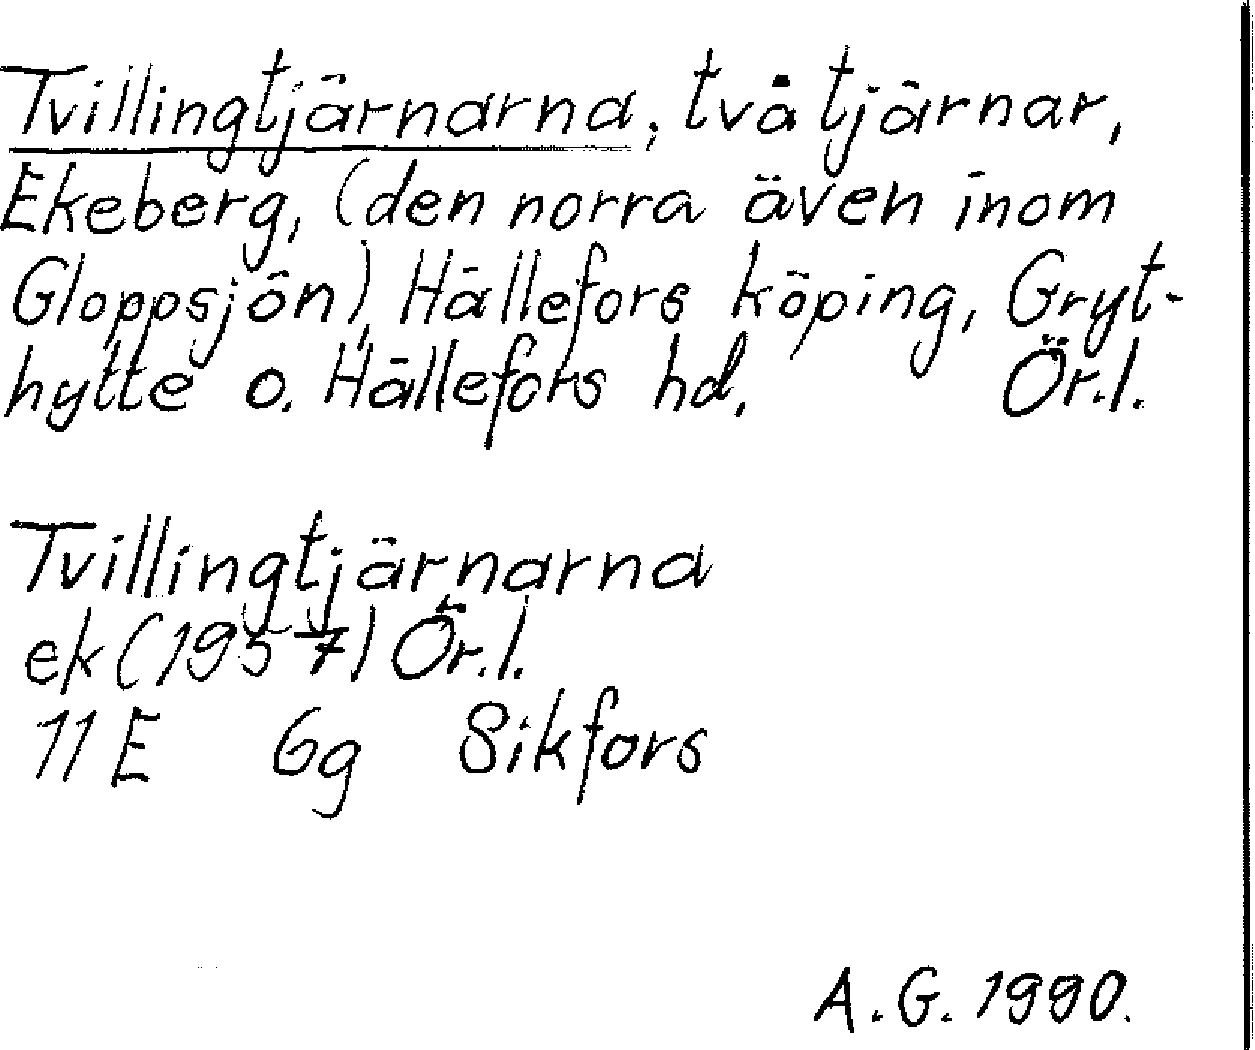 Tvillingtjärnarna, två tjärnar,
Ekeberg, (den norra även inom
Gloppsjön), Hällefors köping, Gryt-
hytte o. Hällefors hd. Ör.l.
Tvillingtjärnarna
ek (1957) Ör.l.
11 E 6g Sikfors
A.G. 1990.